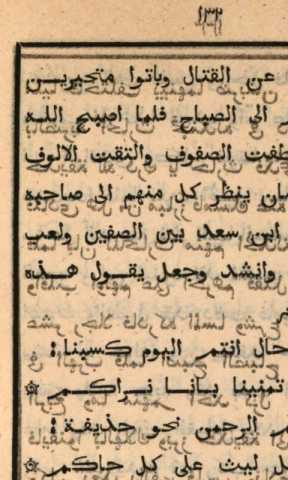 ١٣٢
عن القتال وباتوا متحيريـــن
الى الصباح فلما اصبح اللـه
الصفوف والتقت الالوف
ينظر كل منهم الى صاحبه
ابن سعد بين الصفين ولعب
وانشد وجعل يقـول هـــذه
حال انتم اليوم كسبنا:
تمنينا بـانـا نـراكـــم
الرحمن نحو حذيفة:
ليث على كل حاكـم